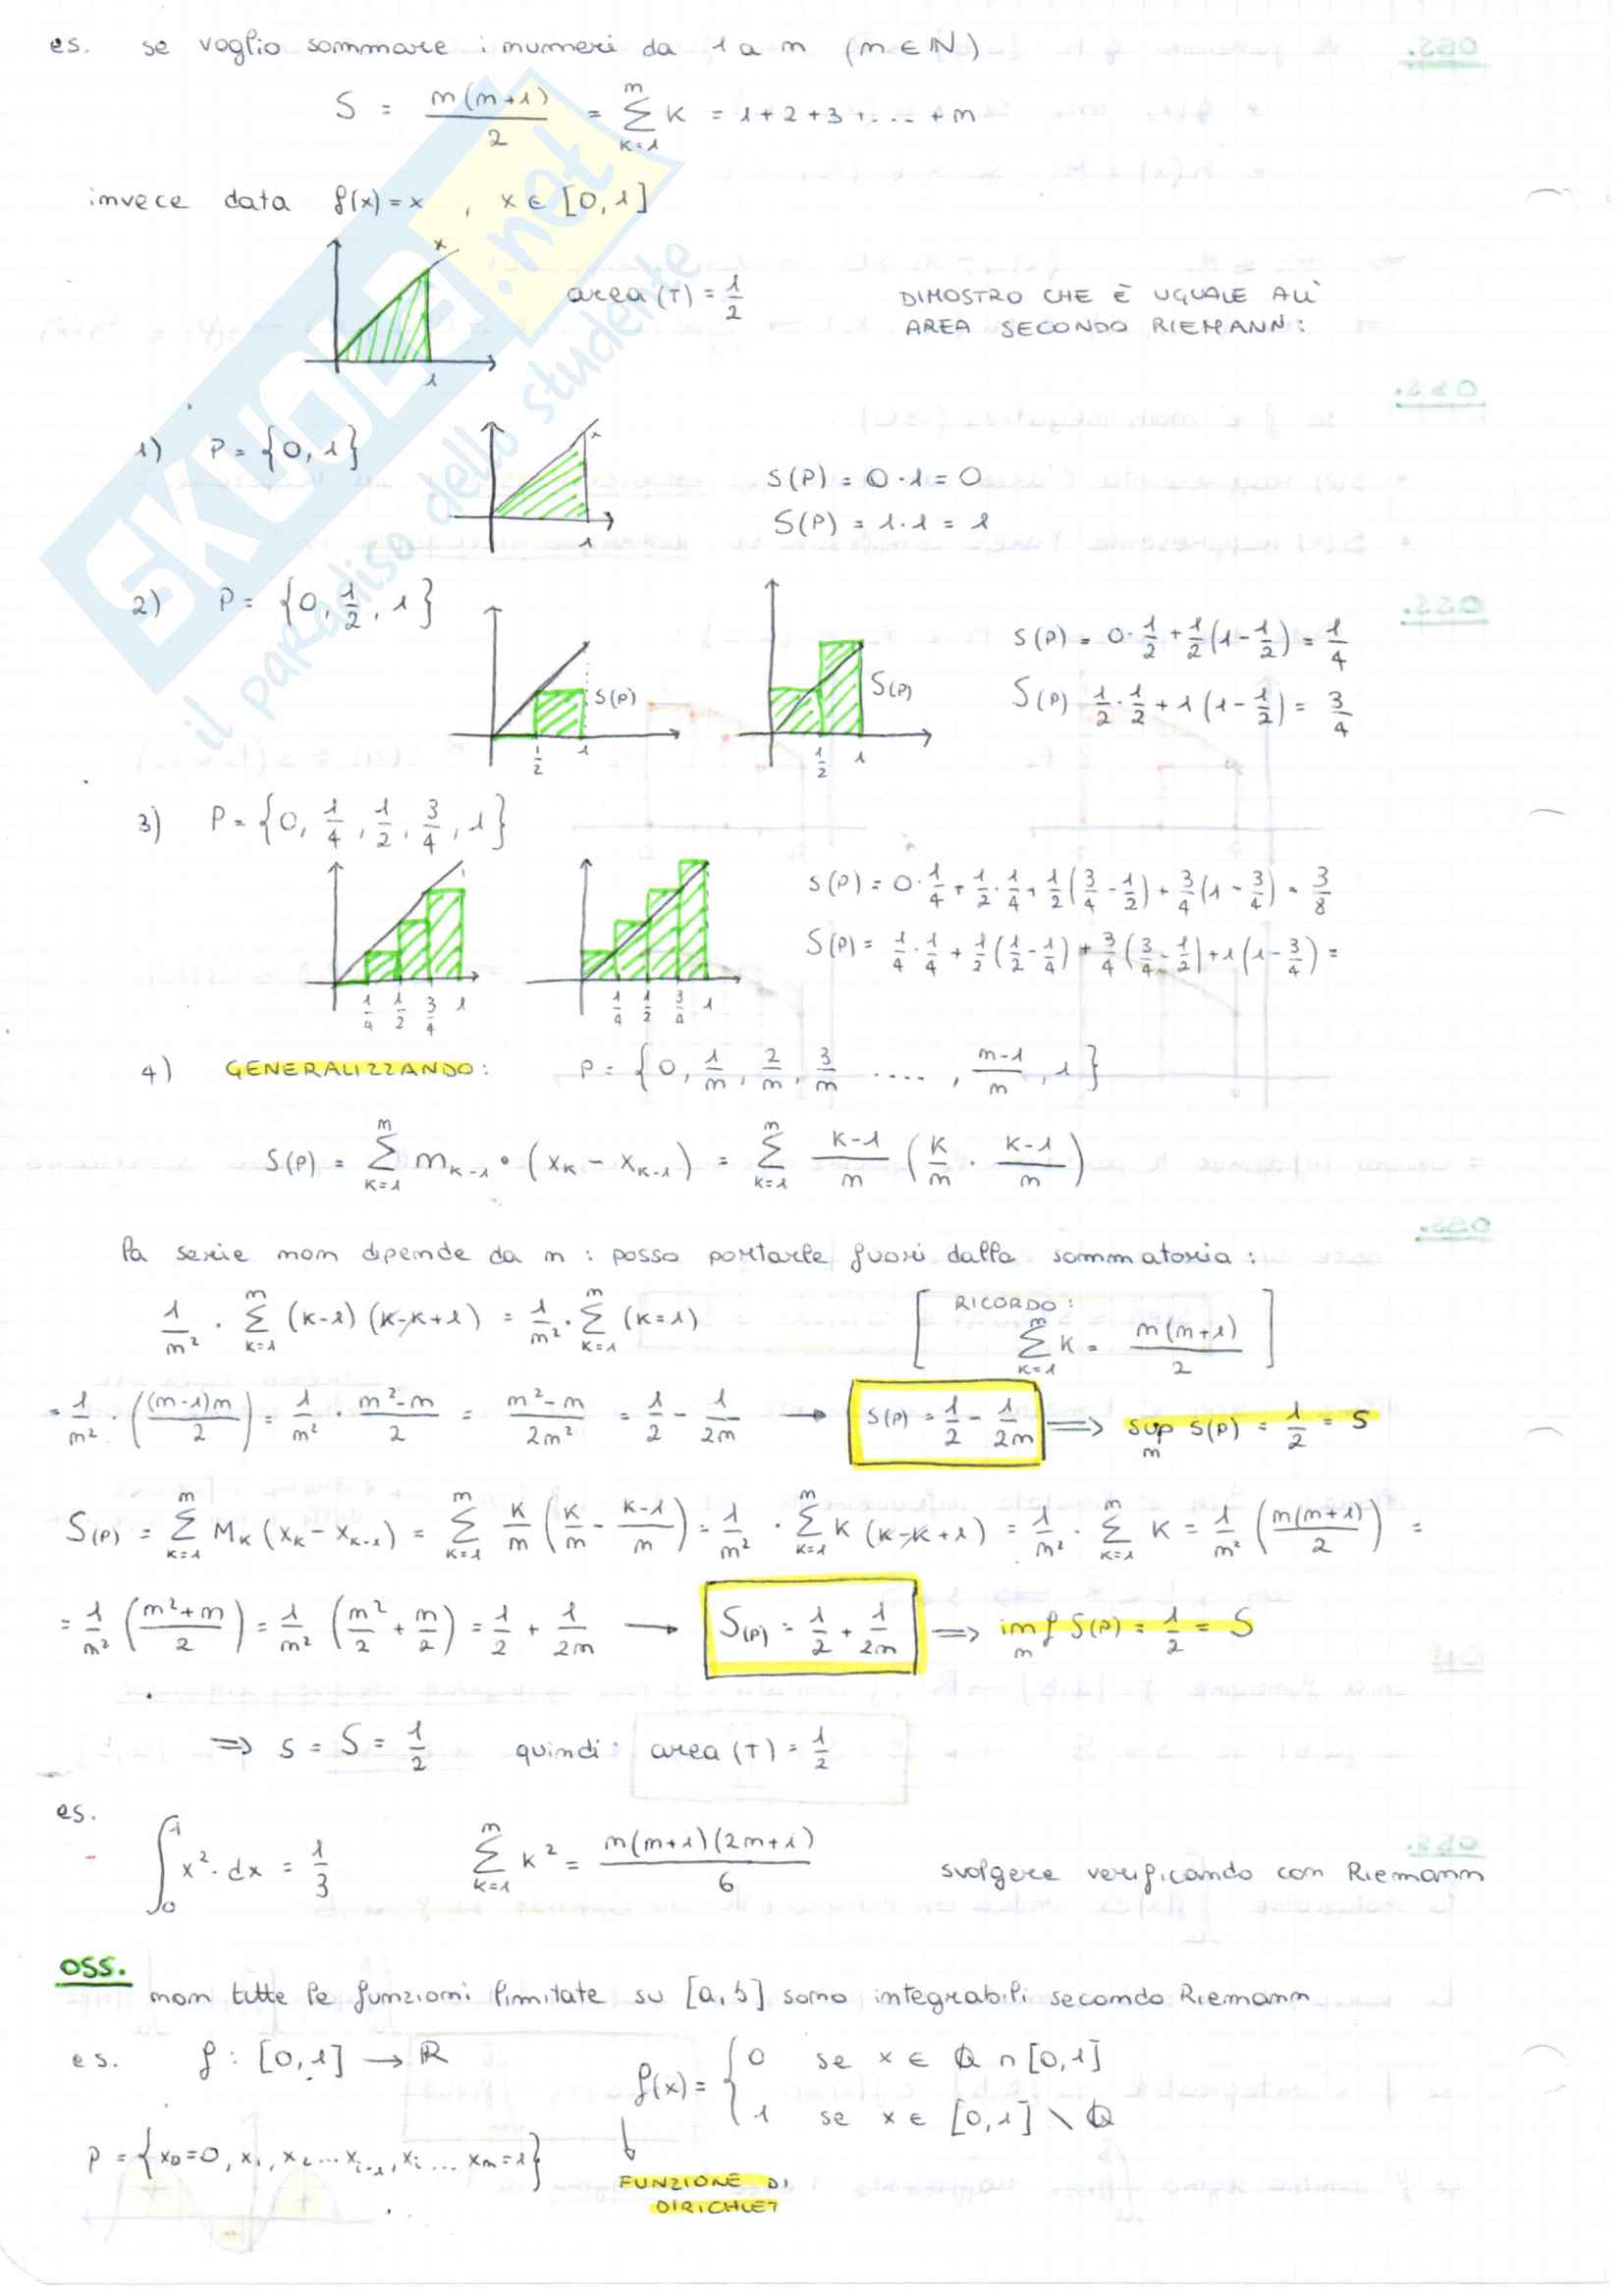 es. se voglio sommare i numeri da 1 a n (n ∈ ℕ)
S = n(n+1)/2 = ∑_{k=1}^{n} k = 1+2+3+.... +n
invece data f(x)=x , x ∈ [0,1]
x
1
area (T) = 1/2
DIMOSTRO CHE È UGUALE ALL'
AREA SECONDO RIEMANN:
1) P = {0, 1}
x
1
s(P) = 0·1 = 0
S(P) = 1·1 = 1
2) P = {0, 1/2, 1}
s(P)
1/2 1
S(P)
1/2 1
s(P) = 0·1/2 + 1/2(1-1/2) = 1/4
S(P) 1/2·1/2 + 1(1-1/2) = 3/4
3) P = {0, 1/4, 1/2, 3/4, 1}
1/4 1/2 3/4 1
1/4 1/2 3/4 1
s(P) = 0·1/4 + 1/2·1/4 + 1/2(3/4-1/2) + 3/4(1-3/4) = 3/8
S(P) = 1/4·1/4 + 1/2(1/2-1/4) + 3/4(3/4-1/2) + 1(1-3/4) =
4) GENERALIZZANDO: P = {0, 1/n, 2/n, 3/n ...., n-1/n, 1}
s(P) = ∑_{k=1}^{n} m_{k-1} • (x_k - x_{k-1}) = ∑_{k=1}^{n} k-1/n (k/n · k-1/n)
la serie non dipende da n : posso portarle fuori dalla sommatoria :
1/n² · ∑_{k=1}^{n} (k-1) (k-k+1) = 1/n² · ∑_{k=1}^{n} (k=1)
[RICORDO: ∑_{k=1}^{n} k = n(n+1)/2]
= 1/n² · ((n-1)n/2) = 1/n² · n²-n/2 = n²-n/2n² = 1/2 - 1/2n → s(P) = 1/2 - 1/2n ⇒ sup_n s(P) = 1/2 = s
S(P) = ∑_{k=1}^{n} M_k (x_k - x_{k-1}) = ∑_{k=1}^{n} k/n (k/n - k-1/n) = 1/n² · ∑_{k=1}^{n} k (k-k+1) = 1/n² · ∑_{k=1}^{n} k = 1/n² (n(n+1)/2) =
= 1/n² (n²+n/2) = 1/n² (n²/2 + n/2) = 1/2 + 1/2n → S(P) = 1/2 + 1/2n ⇒ inf_n S(P) = 1/2 = S
⇒ s = S = 1/2 quindi: area (T) = 1/2
es.
∫_0^1 x²·dx = 1/3 ∑_{k=1}^{n} k² = n(n+1)(2n+1)/6 svolgere verificando con Riemann
OSS.
non tutte le funzioni limitate su [a,b] sono integrabili secondo Riemann
es. f : [0,1] → ℝ f(x) = { 0 se x ∈ ℚ ∩ [0,1]
1 se x ∈ [0,1] \ ℚ
P = {x₀=0, x₁, x₂ ... x_{i-1}, x_i ... x_n=1}
FUNZIONE DI
DIRICHLET
SKUOLA.net
il paradiso dello studente